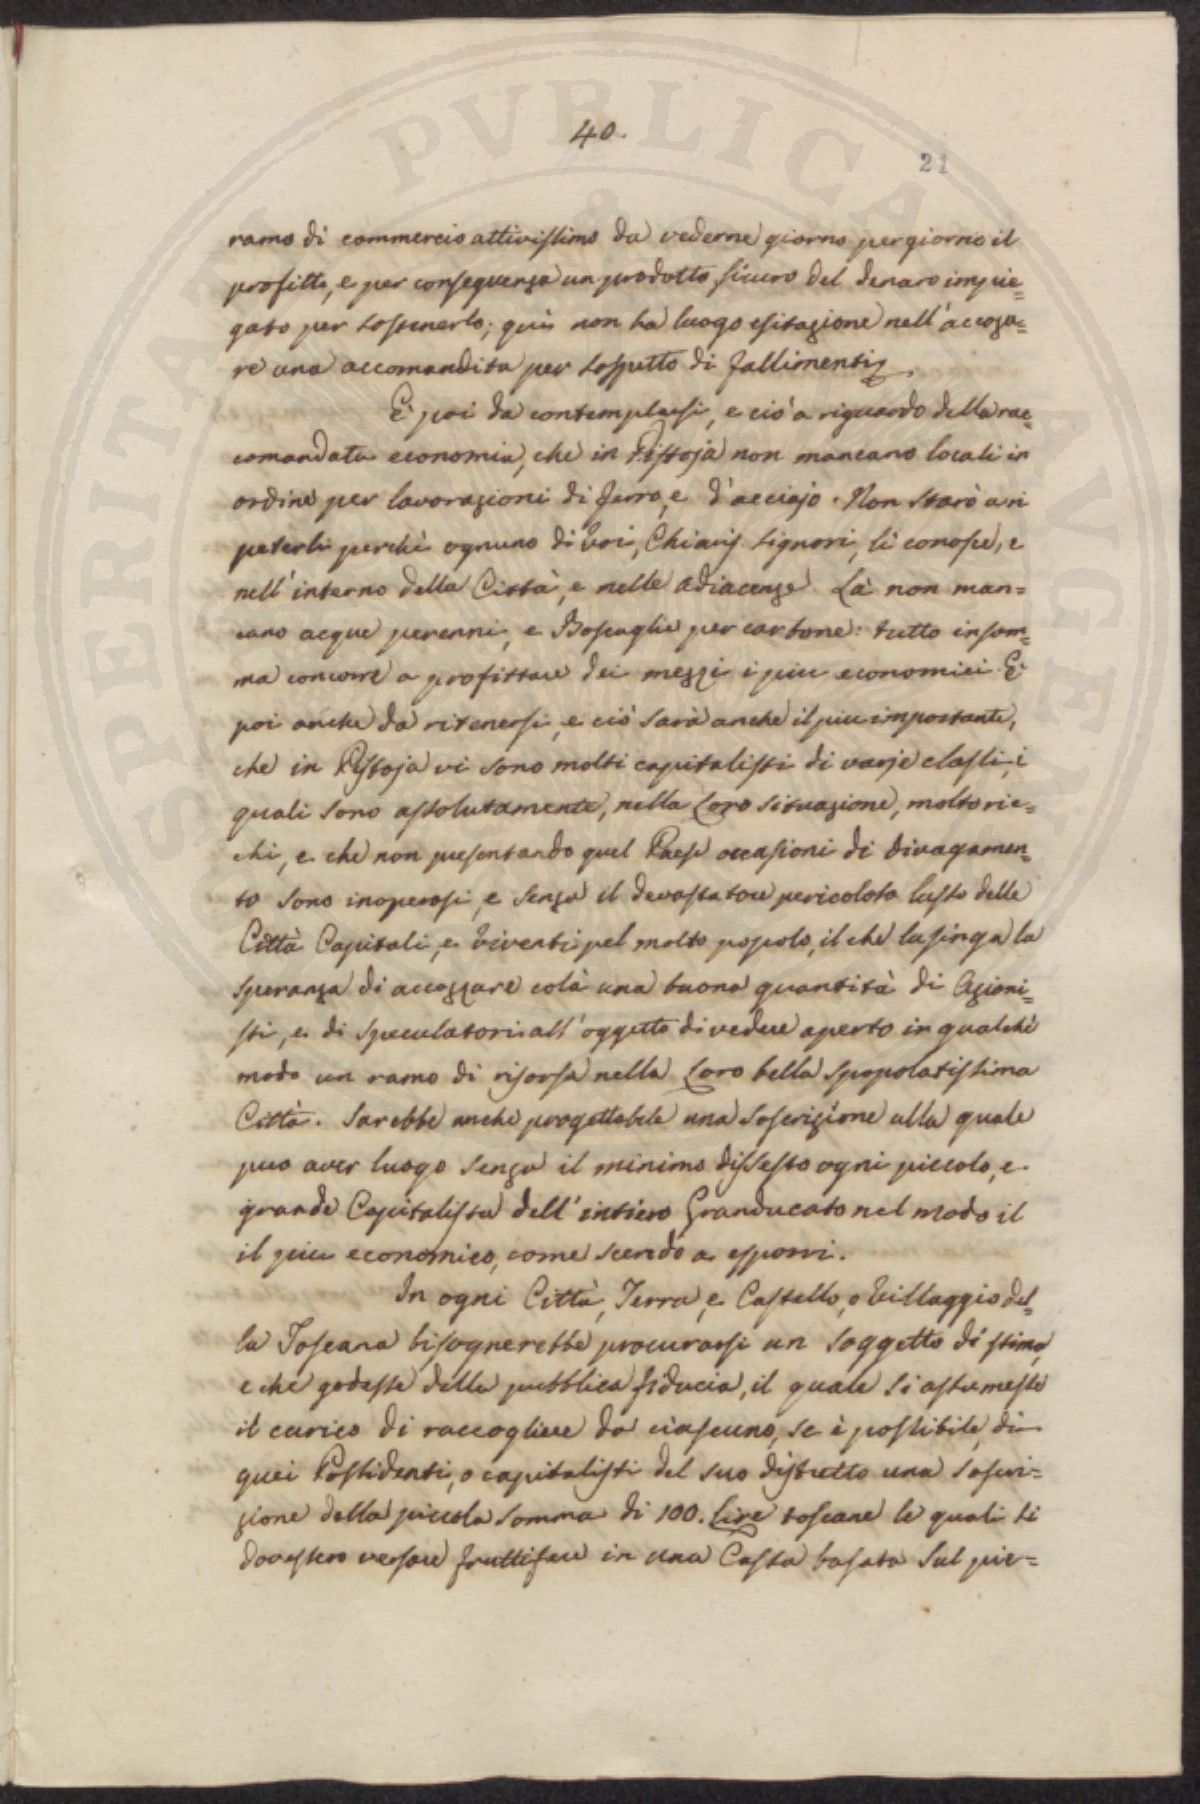 40.
21
ramo di commercio attivissimo da vederne giorno per giorno il
profitto, e per conseguenza un prodotto sicuro del denaro impie=
gato per sostenerlo; quì non ha luogo esitazione nell'accoza=
re una accomandita per sospetto di fallimenti.
E' poi da contemplarsi, e ciò a riguardo della rac=
comandata economia, che in Pistoja non mancano locali in
ordine per lavorazioni di ferro, e d'acciajo. Non starò a ri
peterli perchè ognuno di Voi, Chiaris. Signori, li conosce, e
nell'interno della Città, e nelle adiacenze. Là non man=
cano acque perenni, e Boscaglie per carbone: tutto insom=
ma concorre a profittare dei mezzi i piu economici. E'
poi anche da ritenersi, e ciò sarà anche il piu importante,
che in Pistoja vi sono molti capitalisti di varje classi, i
quali sono assolutamente, nella Loro situazione, molto ric=
chi, e che non presentando quel Paese occasioni di divagamen=
to sono inoperosi, e senza il devastatore pericoloso lusso delle
Città Capitali, e viventi pel molto popolo, il che lusinga la
speranza di accozzare colà una buona quantità di Azioni=
sti, e di speculatori all'oggetto di vedere aperto in qualche
modo un ramo di risorsa nella Loro bella spopolatissima
Città. Sarebbe anche progettabile una Soscrizione alla quale
puo aver luogo senza il minimo dissesto ogni piccolo, e
grande Capitalista dell'intiero Granducato nel modo il
il piu economico, come scendo a esporvi.
In ogni Città, Terra, e Castello, o Villaggio del=
la Toscana bisognerebbe procurarsi un soggetto di stima,
e che godesse della pubblica fiducia, il quale si assumesse
il carico di raccogliere da ciascuno, se è possibile, di
quei Possidenti, o capitalisti del suo distretto una soscri=
zione della piccola somma di 100. Lire toscane le quali si
dovessero versare fruttifere in una Cassa basata sul pie=
PERITATI PUBLICAE AUGENDAE